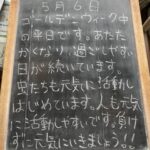 5月6日
ゴールデンウィーク中
の平日です。あたた
かくなり過ごしやすい
日が続いています。
虫たちも元気に活動し
はじめています。人も元気
に活動しやすいです。負け
ずに元気にいきましょう!!